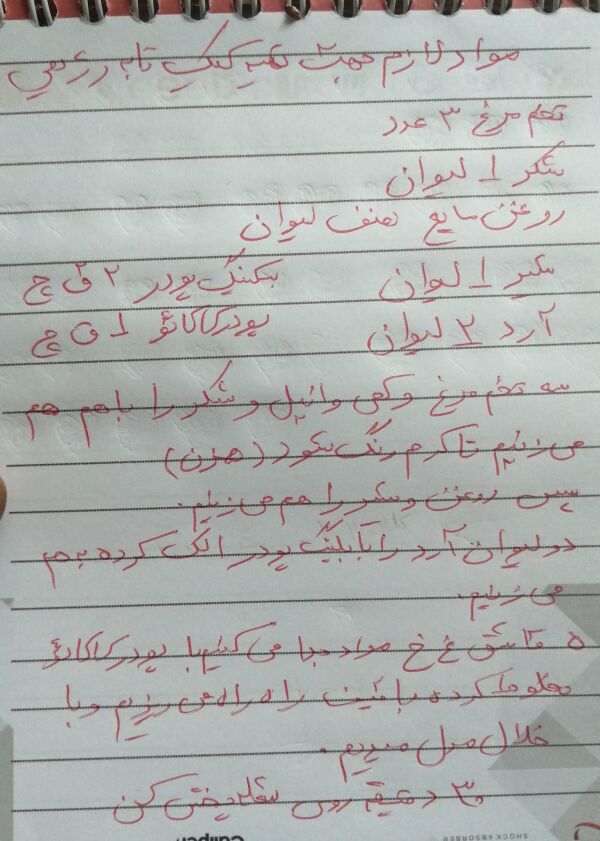 مواد لازم جهت تهیه کیک تابه رژیمی
تخم مرغ ۳ عدد
شکر ۱ لیوان
روغن مایع نصف لیوان
شیر ۱ لیوان بکینگ پودر ۲ ق چ
آرد ۲ لیوان پودر کاکائو ۱ ق چ
سه تخم مرغ و کمی وانیل و شکر را باهم هم
می زنیم تا کرم رنگ شود (همزن)
سپس روغن و شیر را هم می زنیم.
دو لیوان آرد را با بکینگ پودر الک کرده بهم
می زنیم.
۵ قاشق غ خ مواد جدا می کنیم با پودر کاکائو
مخلوط کرده با قیف راه راه می ریزیم و با
خلال مدل میدیم.
۳۰ دقیقه روی شعله پخش کن
SHOCK ABSORBER